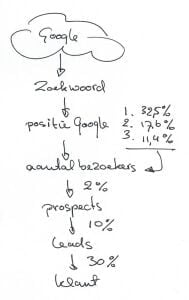 Google
Zoekwoord
positie Google
1. 32,5%
2. 17,6%
3. 11,4%
aantal bezoekers
2%
prospects
10%
leads
30%
klant